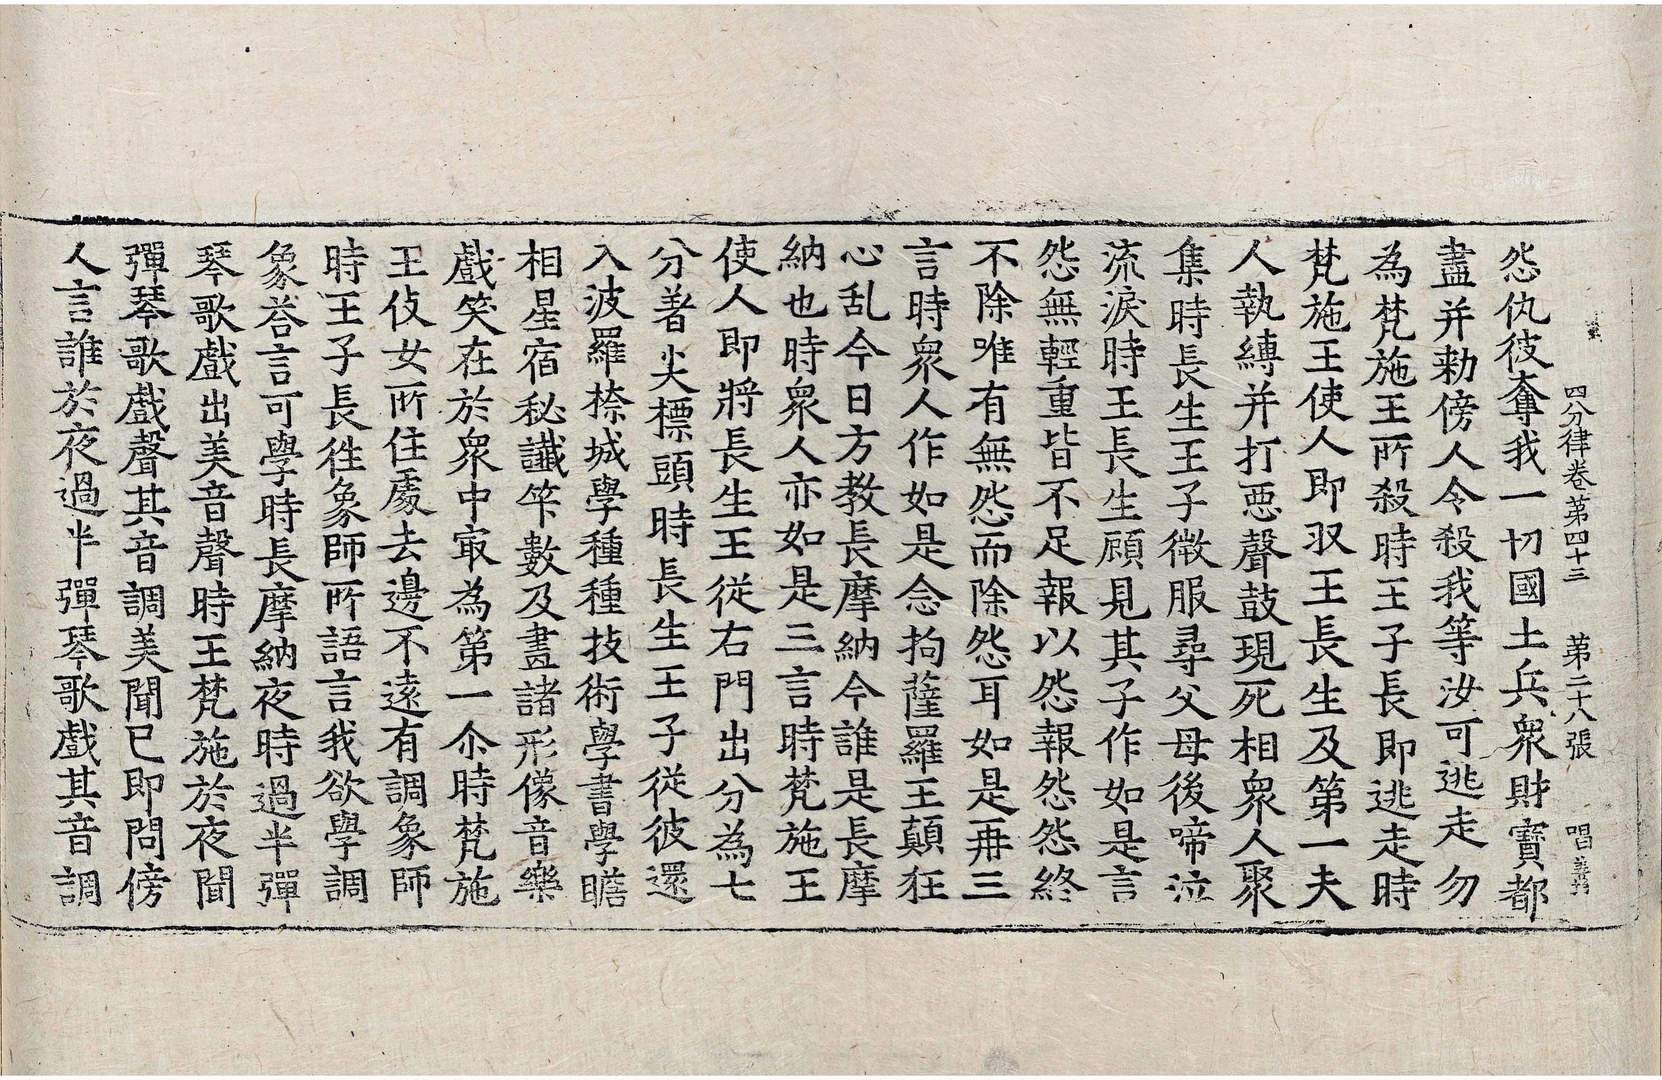 四分律卷第四十三 第二十八張 唱
怨仇彼奪我一切國土兵衆財寶都
盡并勑傍人令殺我等汝可逃走勿
為梵施王所殺時王子長即逃走時
梵施王使人即収王長生及第一夫
人執縛并打惡聲鼓現死相衆人聚
集時長生王子微服尋父母後啼泣
流淚時王長生顧見其子作如是言
怨無輕重皆不足報以怨報怨怨終
不除唯有無怨而除怨耳如是再三
言時衆人作如是念拘薩羅王顛狂
心乱今日方教長摩納今誰是長摩
納也時衆人亦如是三言時梵施王
使人即將長生王從右門出分為七
分著尖標頭時長生王子從彼還
入波羅㮈城學種種技術學書學瞻
相星宿秘讖筭數及畫諸形像音樂
戲笑在於衆中㝡為第一尒時梵施
王伎女所住處去邊不遠有調象師
時王子長徃象師所語言我欲學調
象荅言可學時長摩納夜時過半彈
琴歌戲出美音聲時王梵施於夜聞
彈琴歌戲聲其音調美聞已即問傍
人言誰於夜過半彈琴歌戲其音調